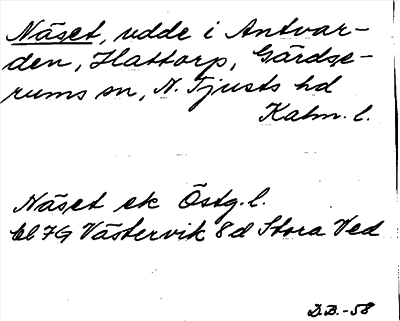 Näset, udde i Antvar-
den, Hattorp, Gärdse-
rums sn, N. Tjusts hd
Kalm. l.
Näset ek Östg. l.
bl 7G Västervik 8d Stora Ved
D.B.-58